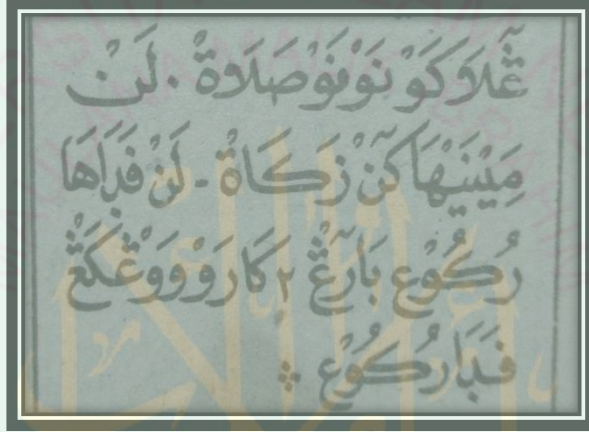 ڠَلَاكَوْ نَوْنَوْ صَلَاةْ . لَنْ
مَيْنَيْهَا كَنْ زَكَاةْ - لَنْ فَدَاهَا
رُكُوْع بَارَڠْ ٢ كَارَوْ وَوْڠْكَڠْ
فَدَا رُكُوْع